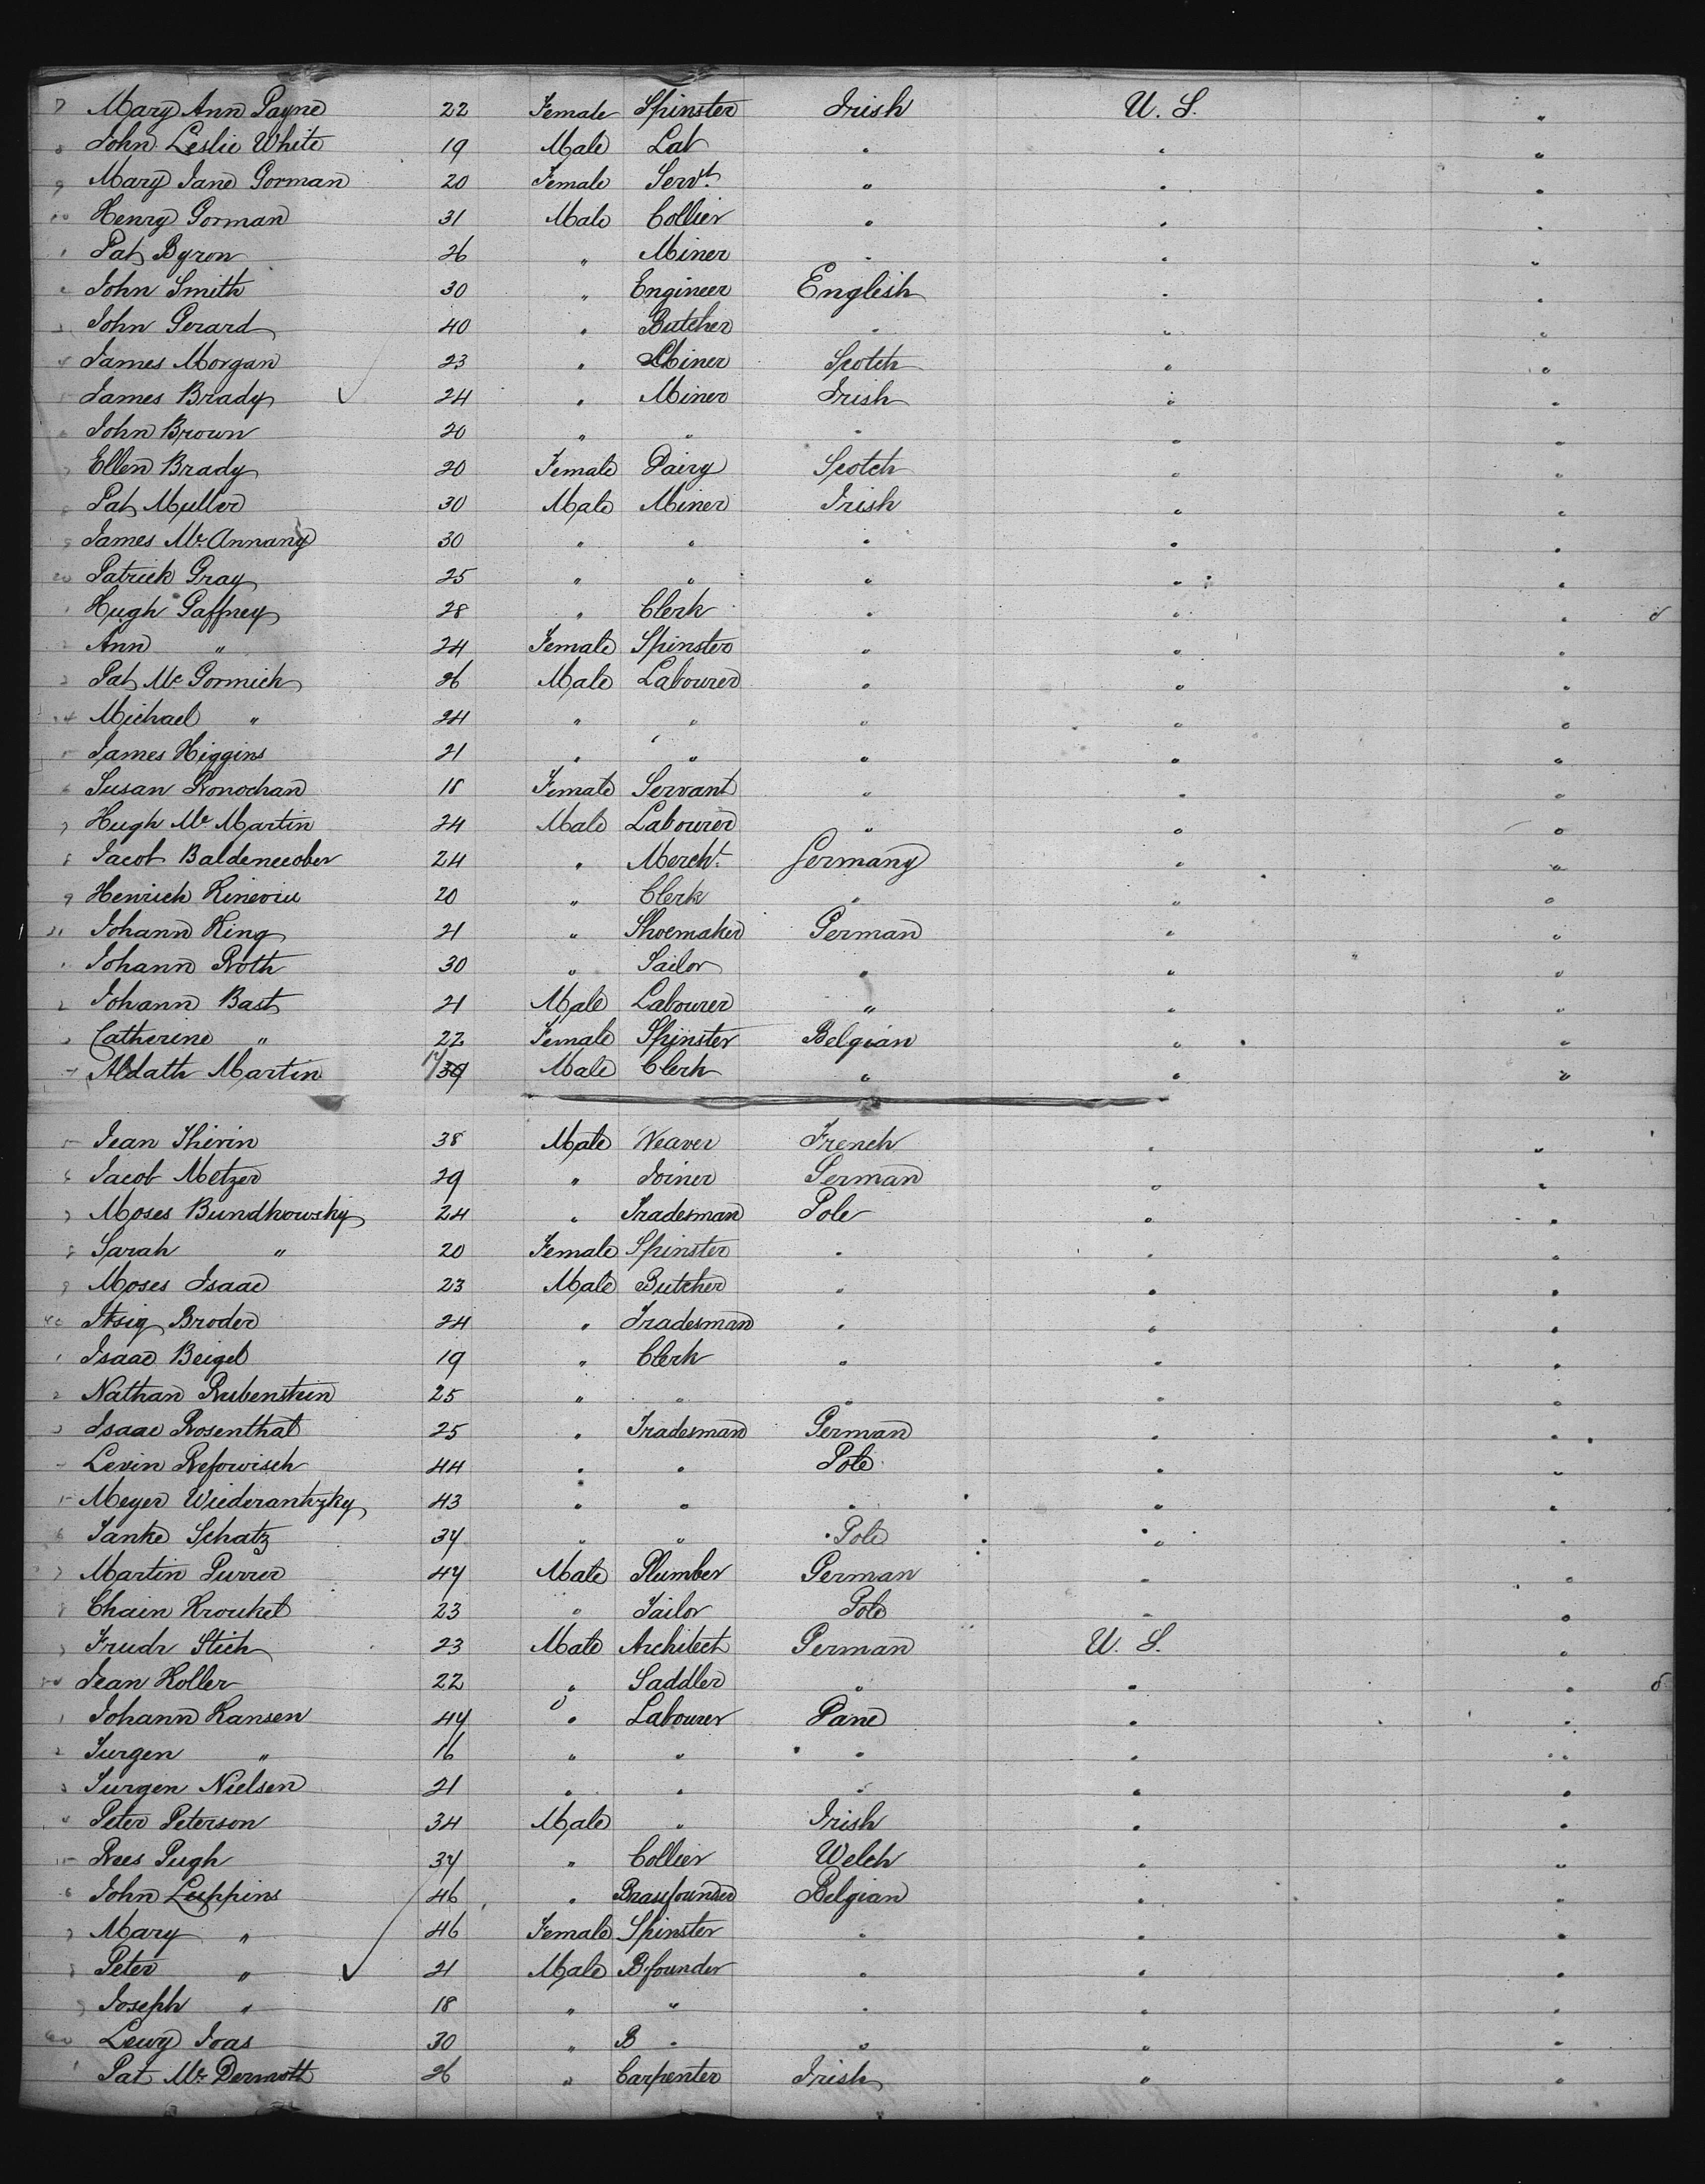 7 Mary Ann Payne 22 Female Spinster Irish U. S. "
8 John Leslie White 19 Male Lab " " "
9 Mary Jane Gorman 20 Female Servt. " " "
10 Henry Gorman 31 Male Collier " " "
1 Pat Byron 26 " Miner " " "
2 John Smith 30 " Engineer English " "
3 John Gerard 40 " Butcher " " "
4 James Morgan 23 " Miner Scotch " "
5 James Brady ✓ 24 " Miner Irish " "
6 John Brown 20 " " " " "
7 Ellen Brady 20 Female Dairy Scotch " "
8 Pat Muller 30 Male Miner Irish " "
9 James Mc Annany 30 " " " " "
20 Patrick Gray 25 " " " " "
1 Hugh Gaffney 28 " Clerk " " "
2 Ann " 24 Female Spinster " " "
3 Pat Mc Gormick 26 Male Labourer " " "
4 Michael " 24 " " " " "
5 James Higgins 21 " " " " "
6 Susan Ronochan 18 Female Servant " " "
7 Hugh Mc Martin 24 Male Labourer " " "
8 Jacob Baldeneeober 24 " Mercht. Germany " "
9 Henrich 20 " Clerk " " "
30 Johann King 21 " Shoemaker German " "
1 Johann Roth 30 " Sailor " " "
2 Johann Bast 21 Male Labourer " " "
3 Catherine " 22 Female Spinster Belgian " "
4 Martin Male Clerk " " "
5 Jean Thirin 38 Male Weaver French " "
6 Jacob Metzer 29 " Joiner German " "
7 Moses Bundkowsky 24 " Tradesman Pole " "
8 Sarah " 20 Female Spinster " " "
9 Moses Isaac 23 Male Butcher " " "
40 Itsig Broder 24 " Tradesman " " "
1 Isaac Beigel 19 " Clerk " " "
2 Nathan Rubenstein 25 " " " " "
3 Isaac Rosenthal 25 " Tradesman German " "
4 Levin Refowisch 44 " " Pole " "
5 Meyer Wiederantzky 43 " " " " "
6 Janke Schatz 34 " " Pole " "
7 Martin Purrer 44 Male Plumber German " "
8 Chain Kroukel 23 " Tailor Pole " "
9 Frudr Stich 23 Male Architect German U. S. "
50 Jean Koller 22 " Saddler " " "
1 Johann Hansen 44 " Labourer Dane " "
2 Jurgen " 16 " " " " "
3 Jurgen Nielsen 21 " " " " "
4 Peter Peterson 34 Male " Irish " "
5 Rees Pugh 34 " Collier Welch " "
6 John Luppins 46 " Brassfounder Belgian " "
7 Mary " 46 Female Spinster " " "
8 Peter " ✓ 21 Male B. founder " " "
9 Joseph " 18 " " " " "
60 Lewy Joas 30 " B " " " "
1 Pat Mc Dermott 26 " Carpenter Irish " "